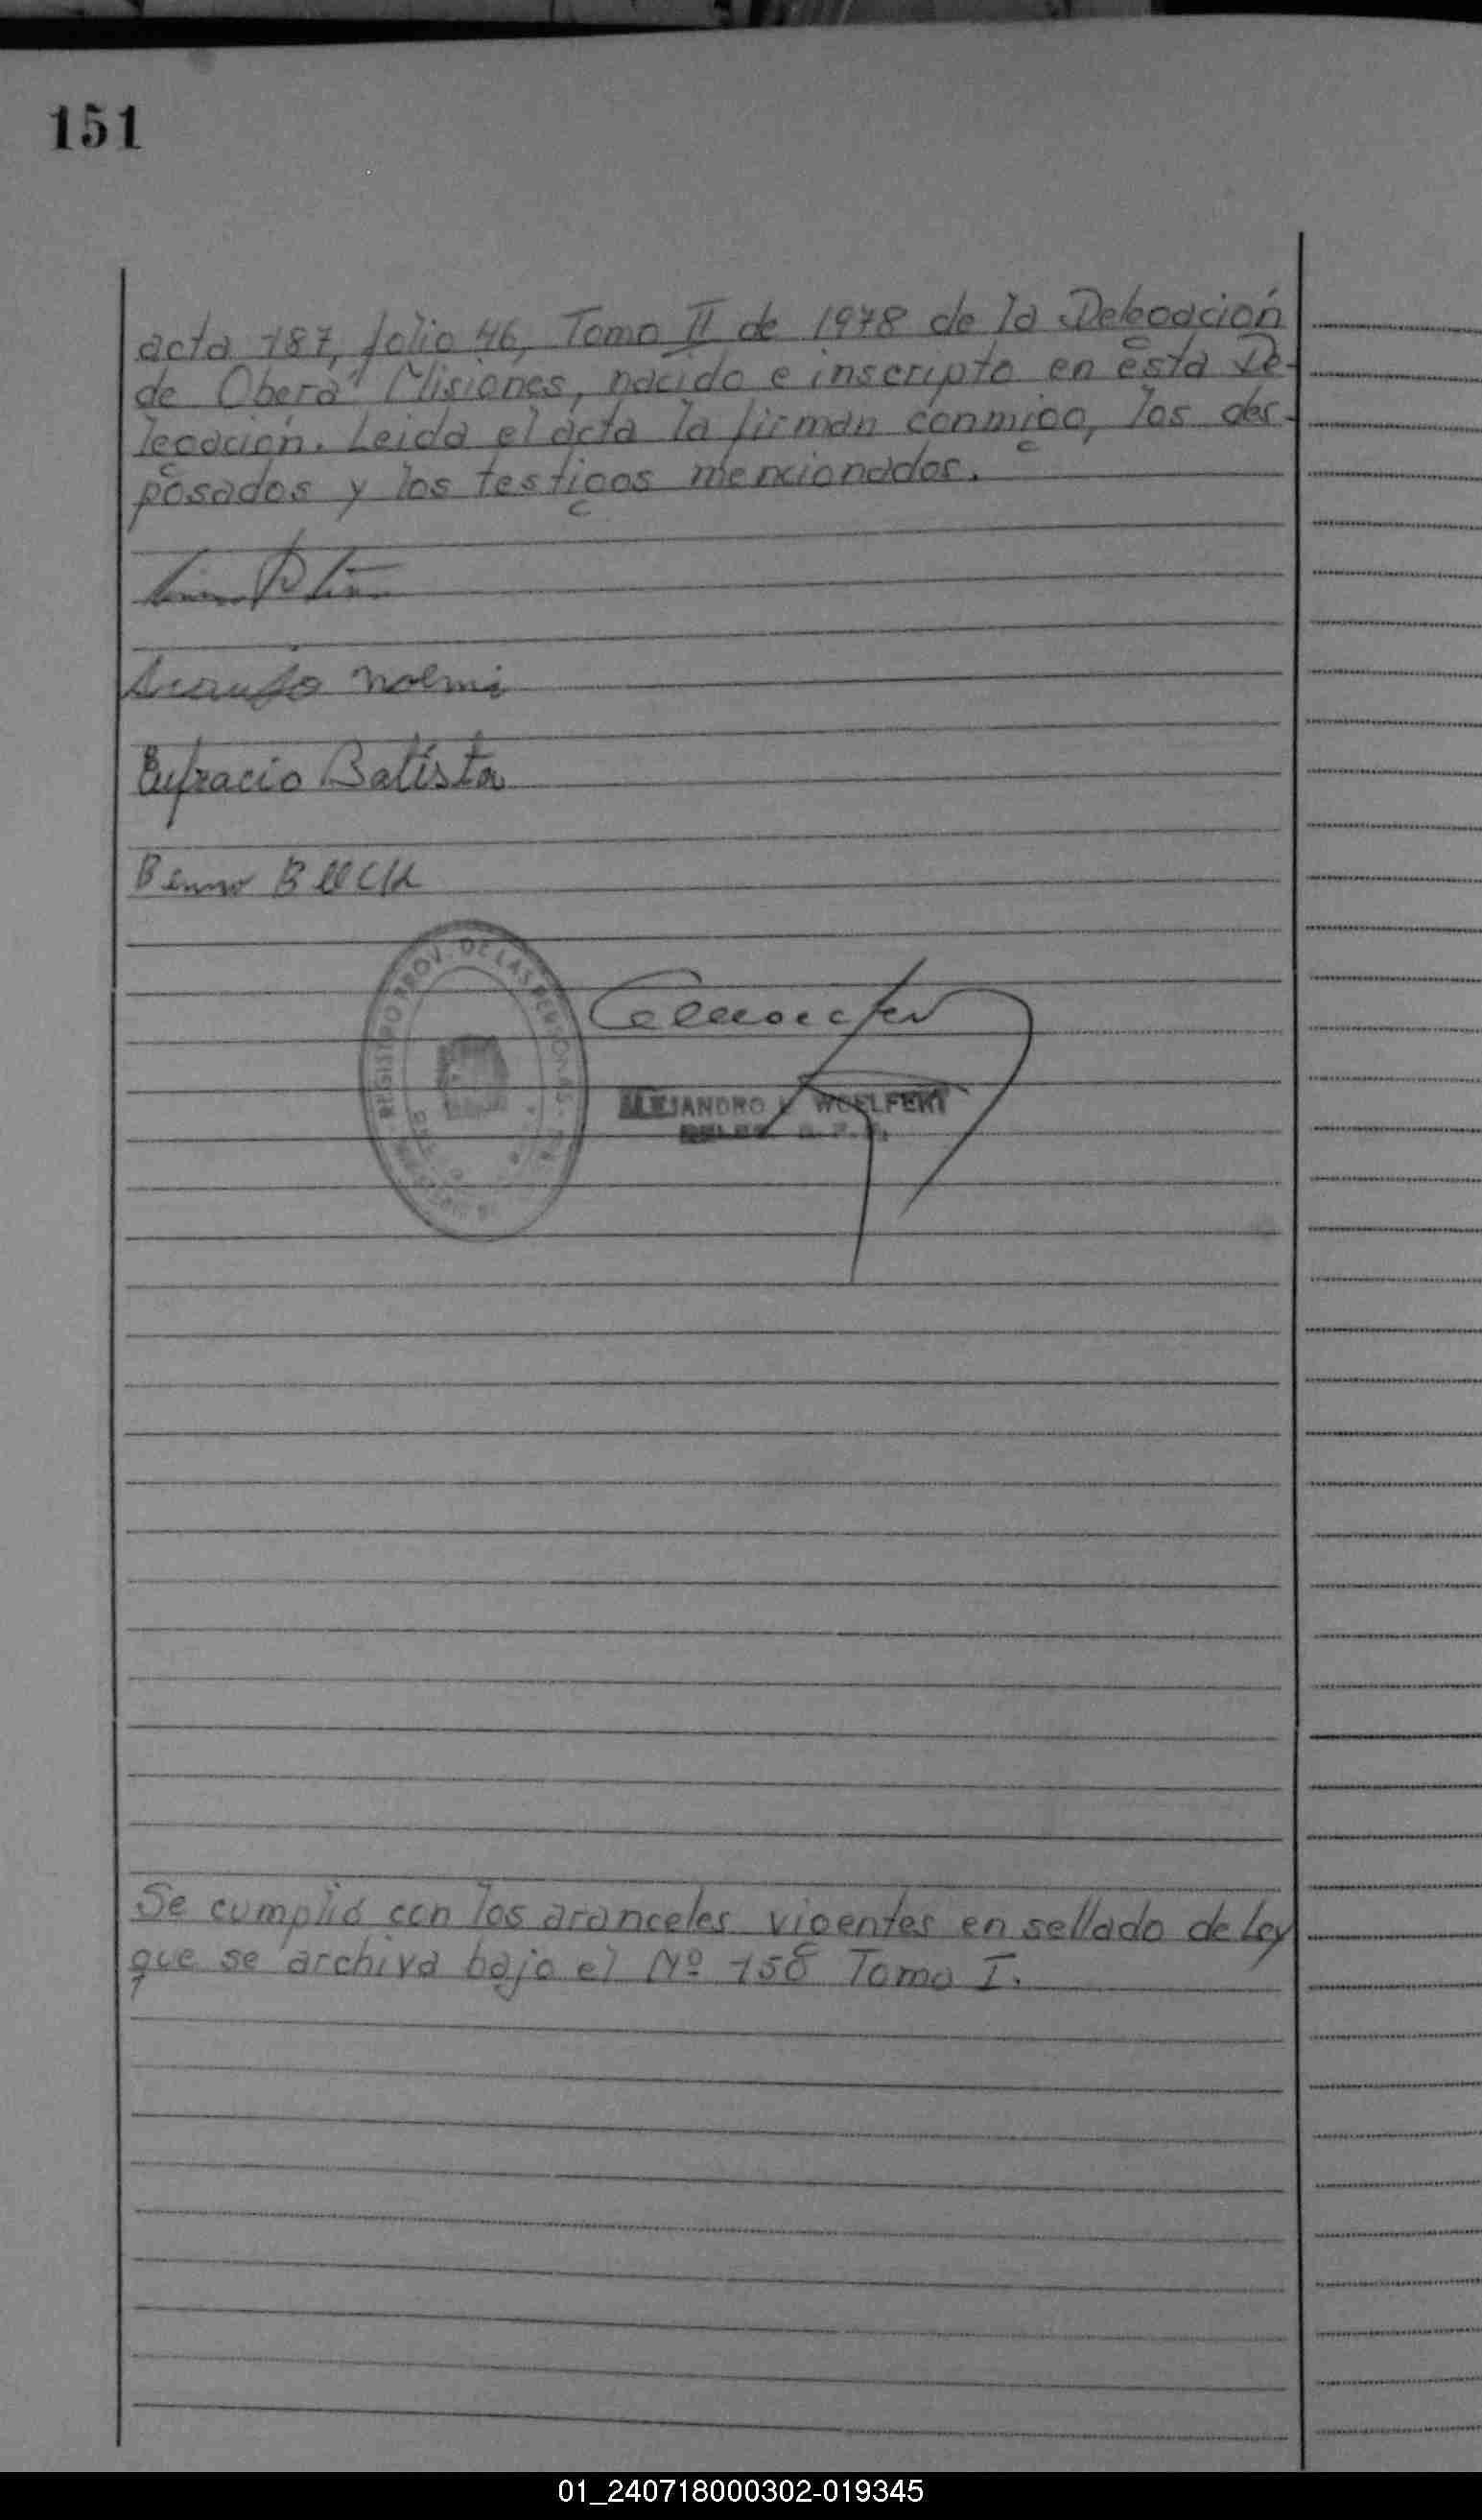 151
acta 187, folio 46, Tomo II de 1978 de la Delegación
de Oberá Misiones, nacido e inscripto en ésta De-
legación. Leida el acta la firman conmigo, los des-
posados y los testigos mencionados.
Araujo Noemi
Eufracio Batista
Benno
REGISTRO PROV. DE LAS PERSONAS
ALEJANDRO WOELFERT
Se cumplió con los aranceles vigentes en sellado de Ley
que se archiva bajo el Nº 158 Tomo I.
01_240718000302-019345